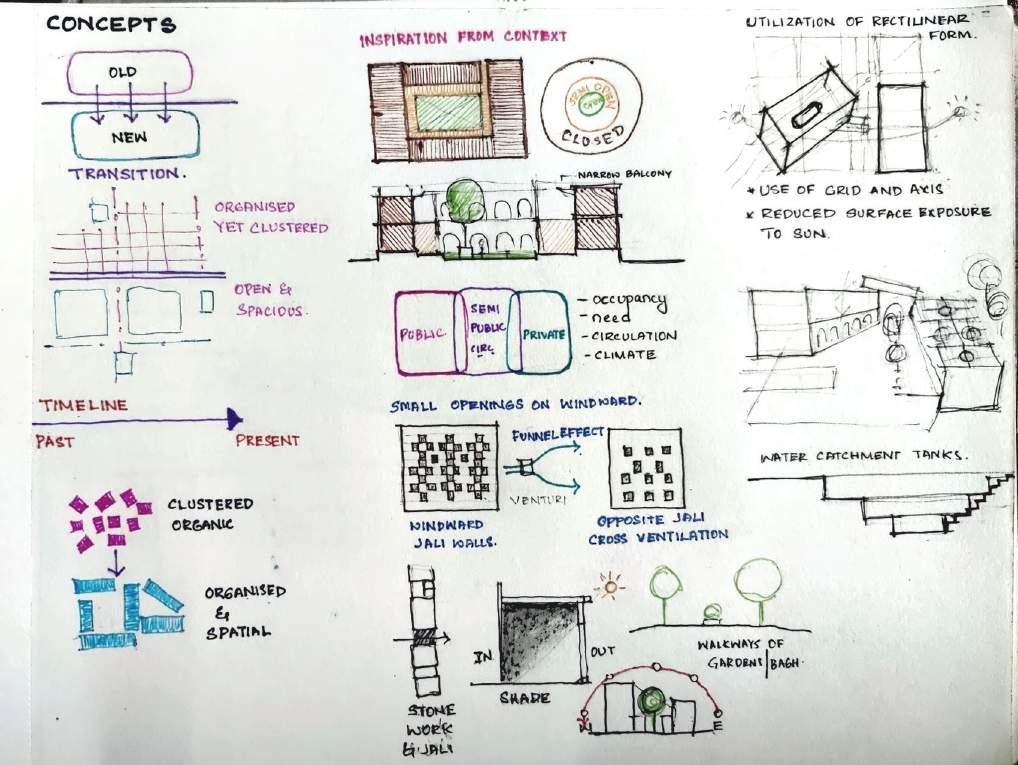 CONCEPTS
OLD
NEW
TRANSITION.
ORGANISED
YET CLUSTERED
OPEN &
SPACIOUS.
TIMELINE
PAST
PRESENT
CLUSTERED
ORGANIC
ORGANISED
&
SPATIAL
INSPIRATION FROM CONTEXT
SEMI OPEN
OPEN
CLOSED
NARROW BALCONY
PUBLIC
SEMI
PUBLIC
CIRC.
PRIVATE
- occupancy
- need
- CIRCULATION
- CLIMATE
SMALL OPENINGS ON WINDWARD.
FUNNEL EFFECT
VENTURI
WINDWARD
JALI WALLS.
OPPOSITE JALI
CROSS VENTILATION
STONE
WORK
& JALI
IN
OUT
SHADE
WALKWAYS OF
GARDENS/BAGH.
E
UTILIZATION OF RECTILINEAR
FORM.
* USE OF GRID AND AXIS
* REDUCED SURFACE EXPOSURE
TO SUN.
WATER CATCHMENT TANKS.